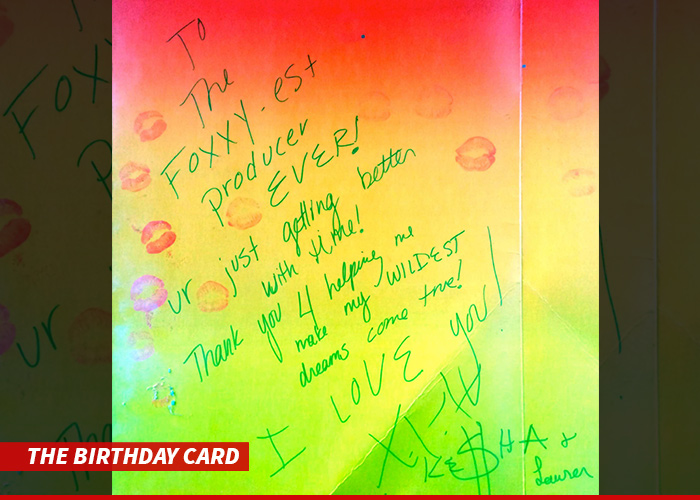 To
The
FOXXY.est
producer
EVER!
ur just getting better
with time!
Thank you 4 helping me
make my WILDEST
dreams come true!
I LOVE you!
KE$HA &
Lauren
THE BIRTHDAY CARD